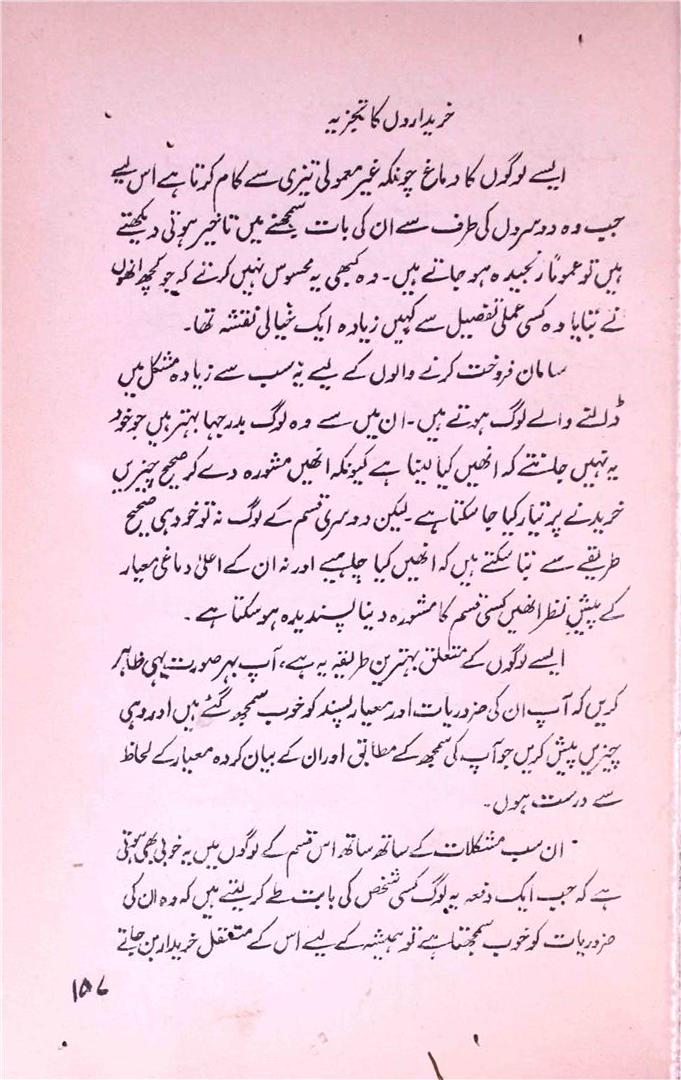 خریداروں کا تجزیہ
ایسے لوگوں کا دماغ چونکہ غیر معمولی تیزی سے کام کرتا ہے اس لیے
جب وہ دوسروں کی طرف سے ان کی بات سمجھنے میں تاخیر ہوتی دیکھتے
ہیں تو عموماً رنجیدہ ہو جاتے ہیں۔ وہ کبھی یہ محسوس نہیں کرتے کہ جو کچھ انھوں
نے بتایا وہ کسی عملی تفصیل سے کہیں زیادہ ایک خیالی نقشہ تھا۔
سامان فروخت کرنے والوں کے لیے یہ سب سے زیادہ مشکل میں
ڈالنے والے لوگ ہوتے ہیں۔ ان میں سے وہ لوگ بدرجہا بہتر ہیں جو خود
یہ نہیں جانتے کہ انھیں کیا لینا ہے کیونکہ انھیں مشورہ دے کر صحیح چیزیں
خریدنے پر تیار کیا جا سکتا ہے۔ لیکن دوسری قسم کے لوگ نہ تو خود ہی صحیح
طریقے سے بتا سکتے ہیں کہ انھیں کیا چاہیے اور نہ ان کے اعلیٰ دماغی معیار
کے پیشِ نظر انھیں کسی قسم کا مشورہ دینا پسندیدہ ہو سکتا ہے۔
ایسے لوگوں کے متعلق بہترین طریقہ یہ ہے، آپ بہر صورت یہی ظاہر
کریں کہ آپ ان کی ضروریات اور معیار پسند کو خوب سمجھ گئے ہیں اور وہی
چیزیں پیش کریں جو آپ کی سمجھ کے مطابق اور ان کے بیان کردہ معیار کے لحاظ
سے درست ہوں۔
ان سب مشکلات کے ساتھ ساتھ اس قسم کے لوگوں میں یہ خوبی بھی ہوتی
ہے کہ جب ایک دفعہ یہ لوگ کسی شخص کی بابت طے کر لیتے ہیں کہ وہ ان کی
ضروریات کو خوب سمجھتا ہے تو ہمیشہ کے لیے اس کے مستقل خریدار بن جاتے
۱۵۷